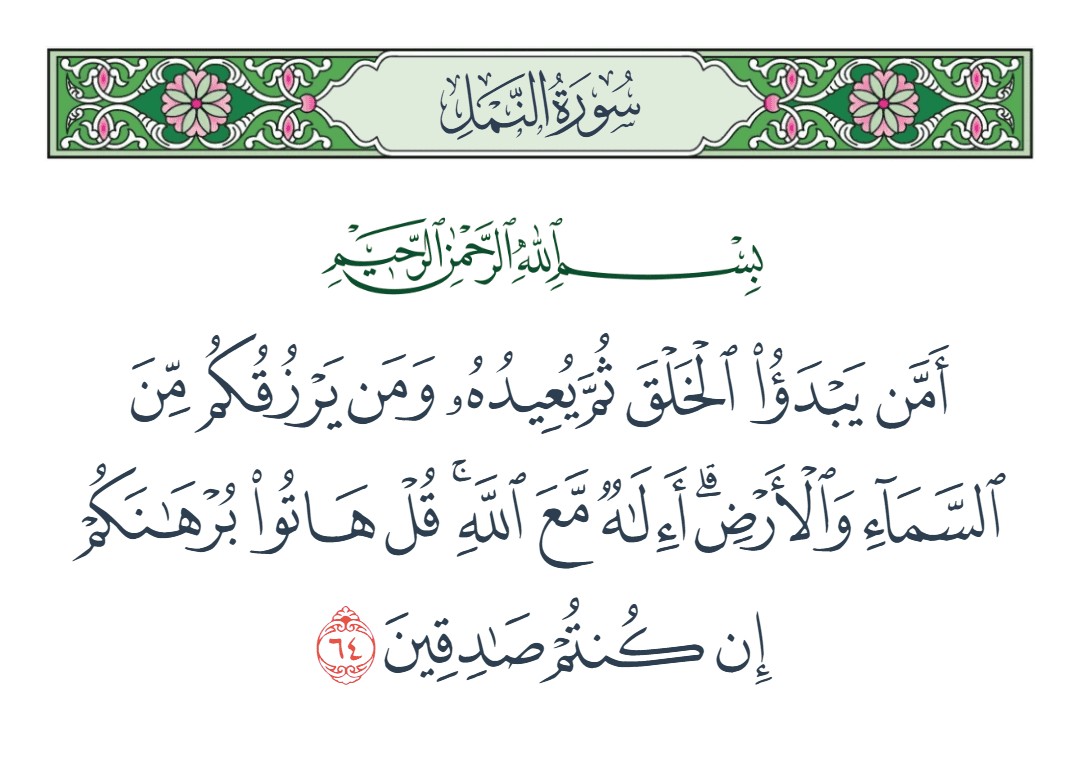 سُورَةُ النَّمۡلِ
بِسۡمِ ٱللَّهِ ٱلرَّحۡمَٰنِ ٱلرَّحِيمِ
أَمَّن يَبۡدَؤُاْ ٱلۡخَلۡقَ ثُمَّ يُعِيدُهُۥ وَمَن يَرۡزُقُكُم مِّنَ
ٱلسَّمَآءِ وَٱلۡأَرۡضِۗ أَءِلَٰهٞ مَّعَ ٱللَّهِۚ قُلۡ هَاتُواْ بُرۡهَٰنَكُمۡ
إِن كُنتُمۡ صَٰدِقِينَ ٦٤